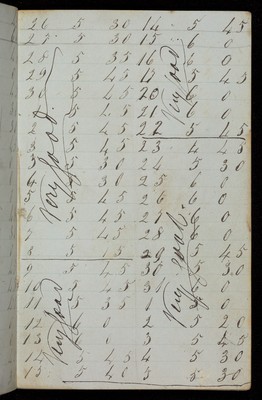 26 5 30
27 5 30
28 5 35
29 5 45
30 5 45
1 5 45
2 5 45
3 5 45
4 5 30
5 5 30
6 5 45
7 5 45
8 5 15
9 5 45
10 5 45
11 5 35
12 0
13
14 5 45
15 5 40
Very good
Very good
14 5 45
15 6 0
16 6 0
17 5 45
20 6 0
21 6 0
22 5 45
23 4 45
24 5 30
25 6 0
26 6 0
27 6 0
28 6 0
29 5 45
30 5 30
31
1 0
2 2 20
3 5 45
4 5 30
5 5 30
Very good
Very good